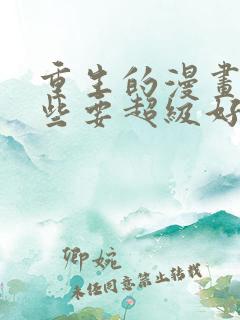 重生的漫畫
些要超級好
卿婉
未經同意禁止轉載